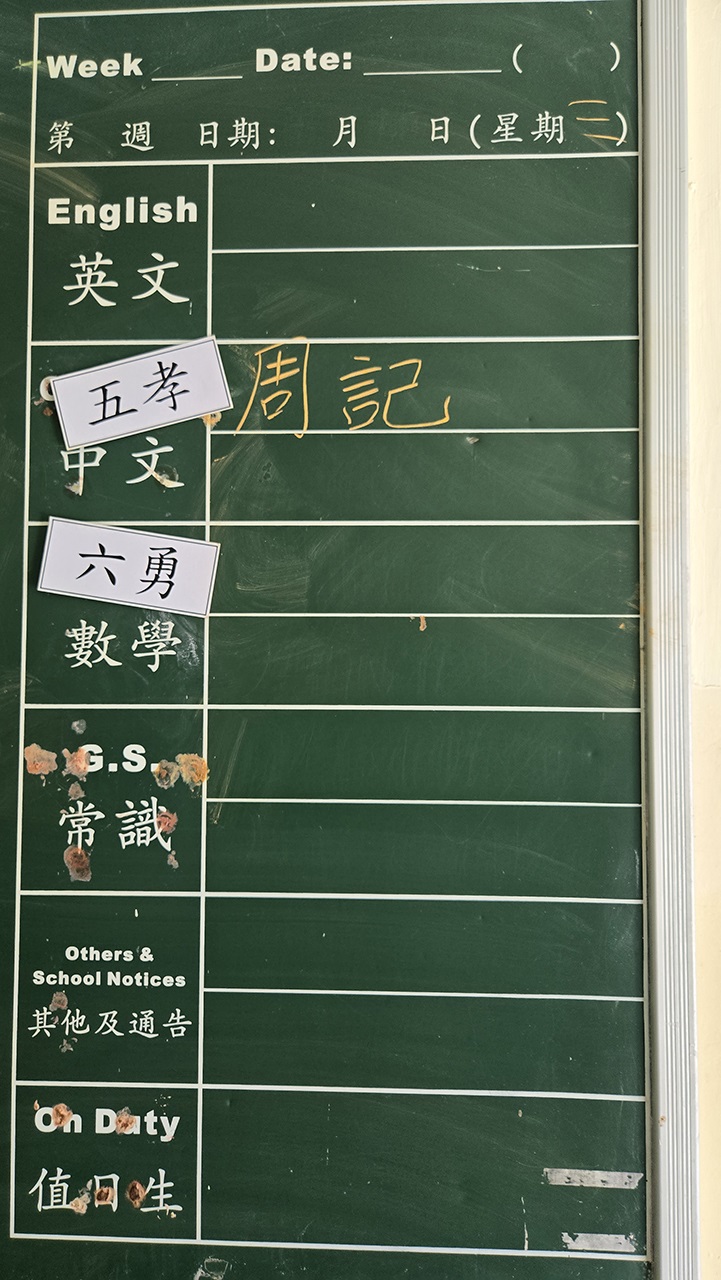 Week ____ Date: ______ ( )
第 週 日期: 月 日(星期三)
English
英文
五孝
周記
中文
六勇
數學
G.S.
常識
Others &
School Notices
其他及通告
On Duty
值日生